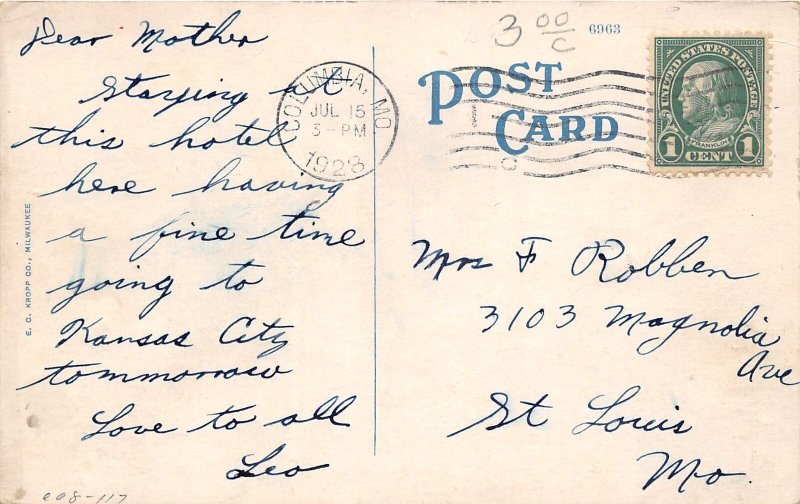 Dear Mother
Staying at
this hotel
here having
a fine time
going to
Kansas City
tommorrow
Love to all
Leo
E. C. KROPP CO., MILWAUKEE
008-117
3 00/c
6963
POST
CARD
COLUMBIA, MO
JUL 15
3-PM
1923
UNITED STATES POSTAGE
FRANKLIN
1 CENT 1
Mrs F Robben
3103 Magnolia
Ave
St Louis
Mo.